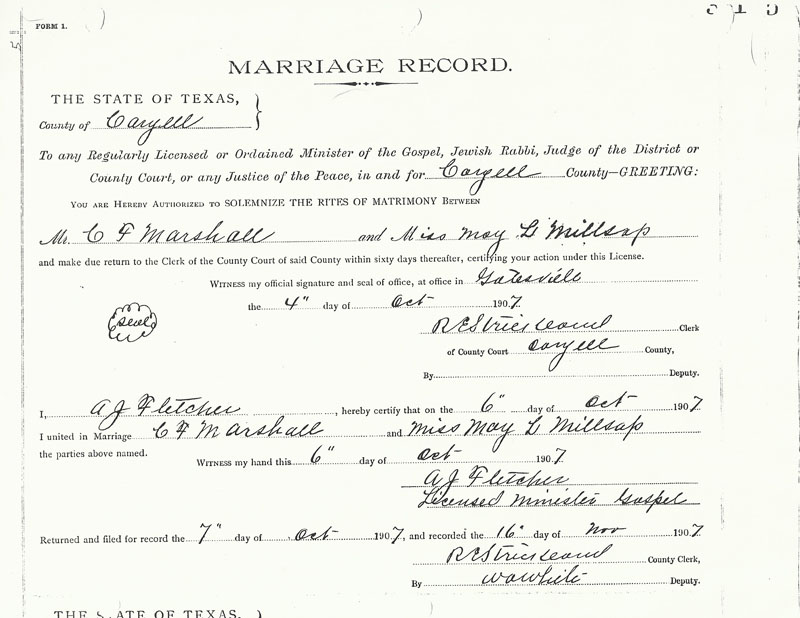 FORM 1.
MARRIAGE RECORD.
THE STATE OF TEXAS,
County of Coryell
To any Regularly Licensed or Ordained Minister of the Gospel, Jewish Rabbi, Judge of the District or
County Court, or any Justice of the Peace, in and for Coryell County—GREETING:
YOU ARE HEREBY AUTHORIZED TO SOLEMNIZE THE RITES OF MATRIMONY BETWEEN
Mr. C F Marshall and Miss May L Millsap
and make due return to the Clerk of the County Court of said County within sixty days thereafter, certifying your action under this License.
WITNESS my official signature and seal of office, at office in Gatesville
the 4" day of Oct 1907.
Seal
R E Strickland Clerk
of County Court Coryell County,
By Deputy.
I, A J Fletcher, hereby certify that on the 6" day of Oct 1907
I united in Marriage C F Marshall and Miss May L Millsap
the parties above named.
WITNESS my hand this 6" day of Oct 1907.
A J Fletcher
Licensed Minister Gospel
Returned and filed for record the 7" day of Oct 1907, and recorded the 16" day of Nov 1907.
R E Strickland County Clerk,
By W A White Deputy.
THE STATE OF TEXAS,